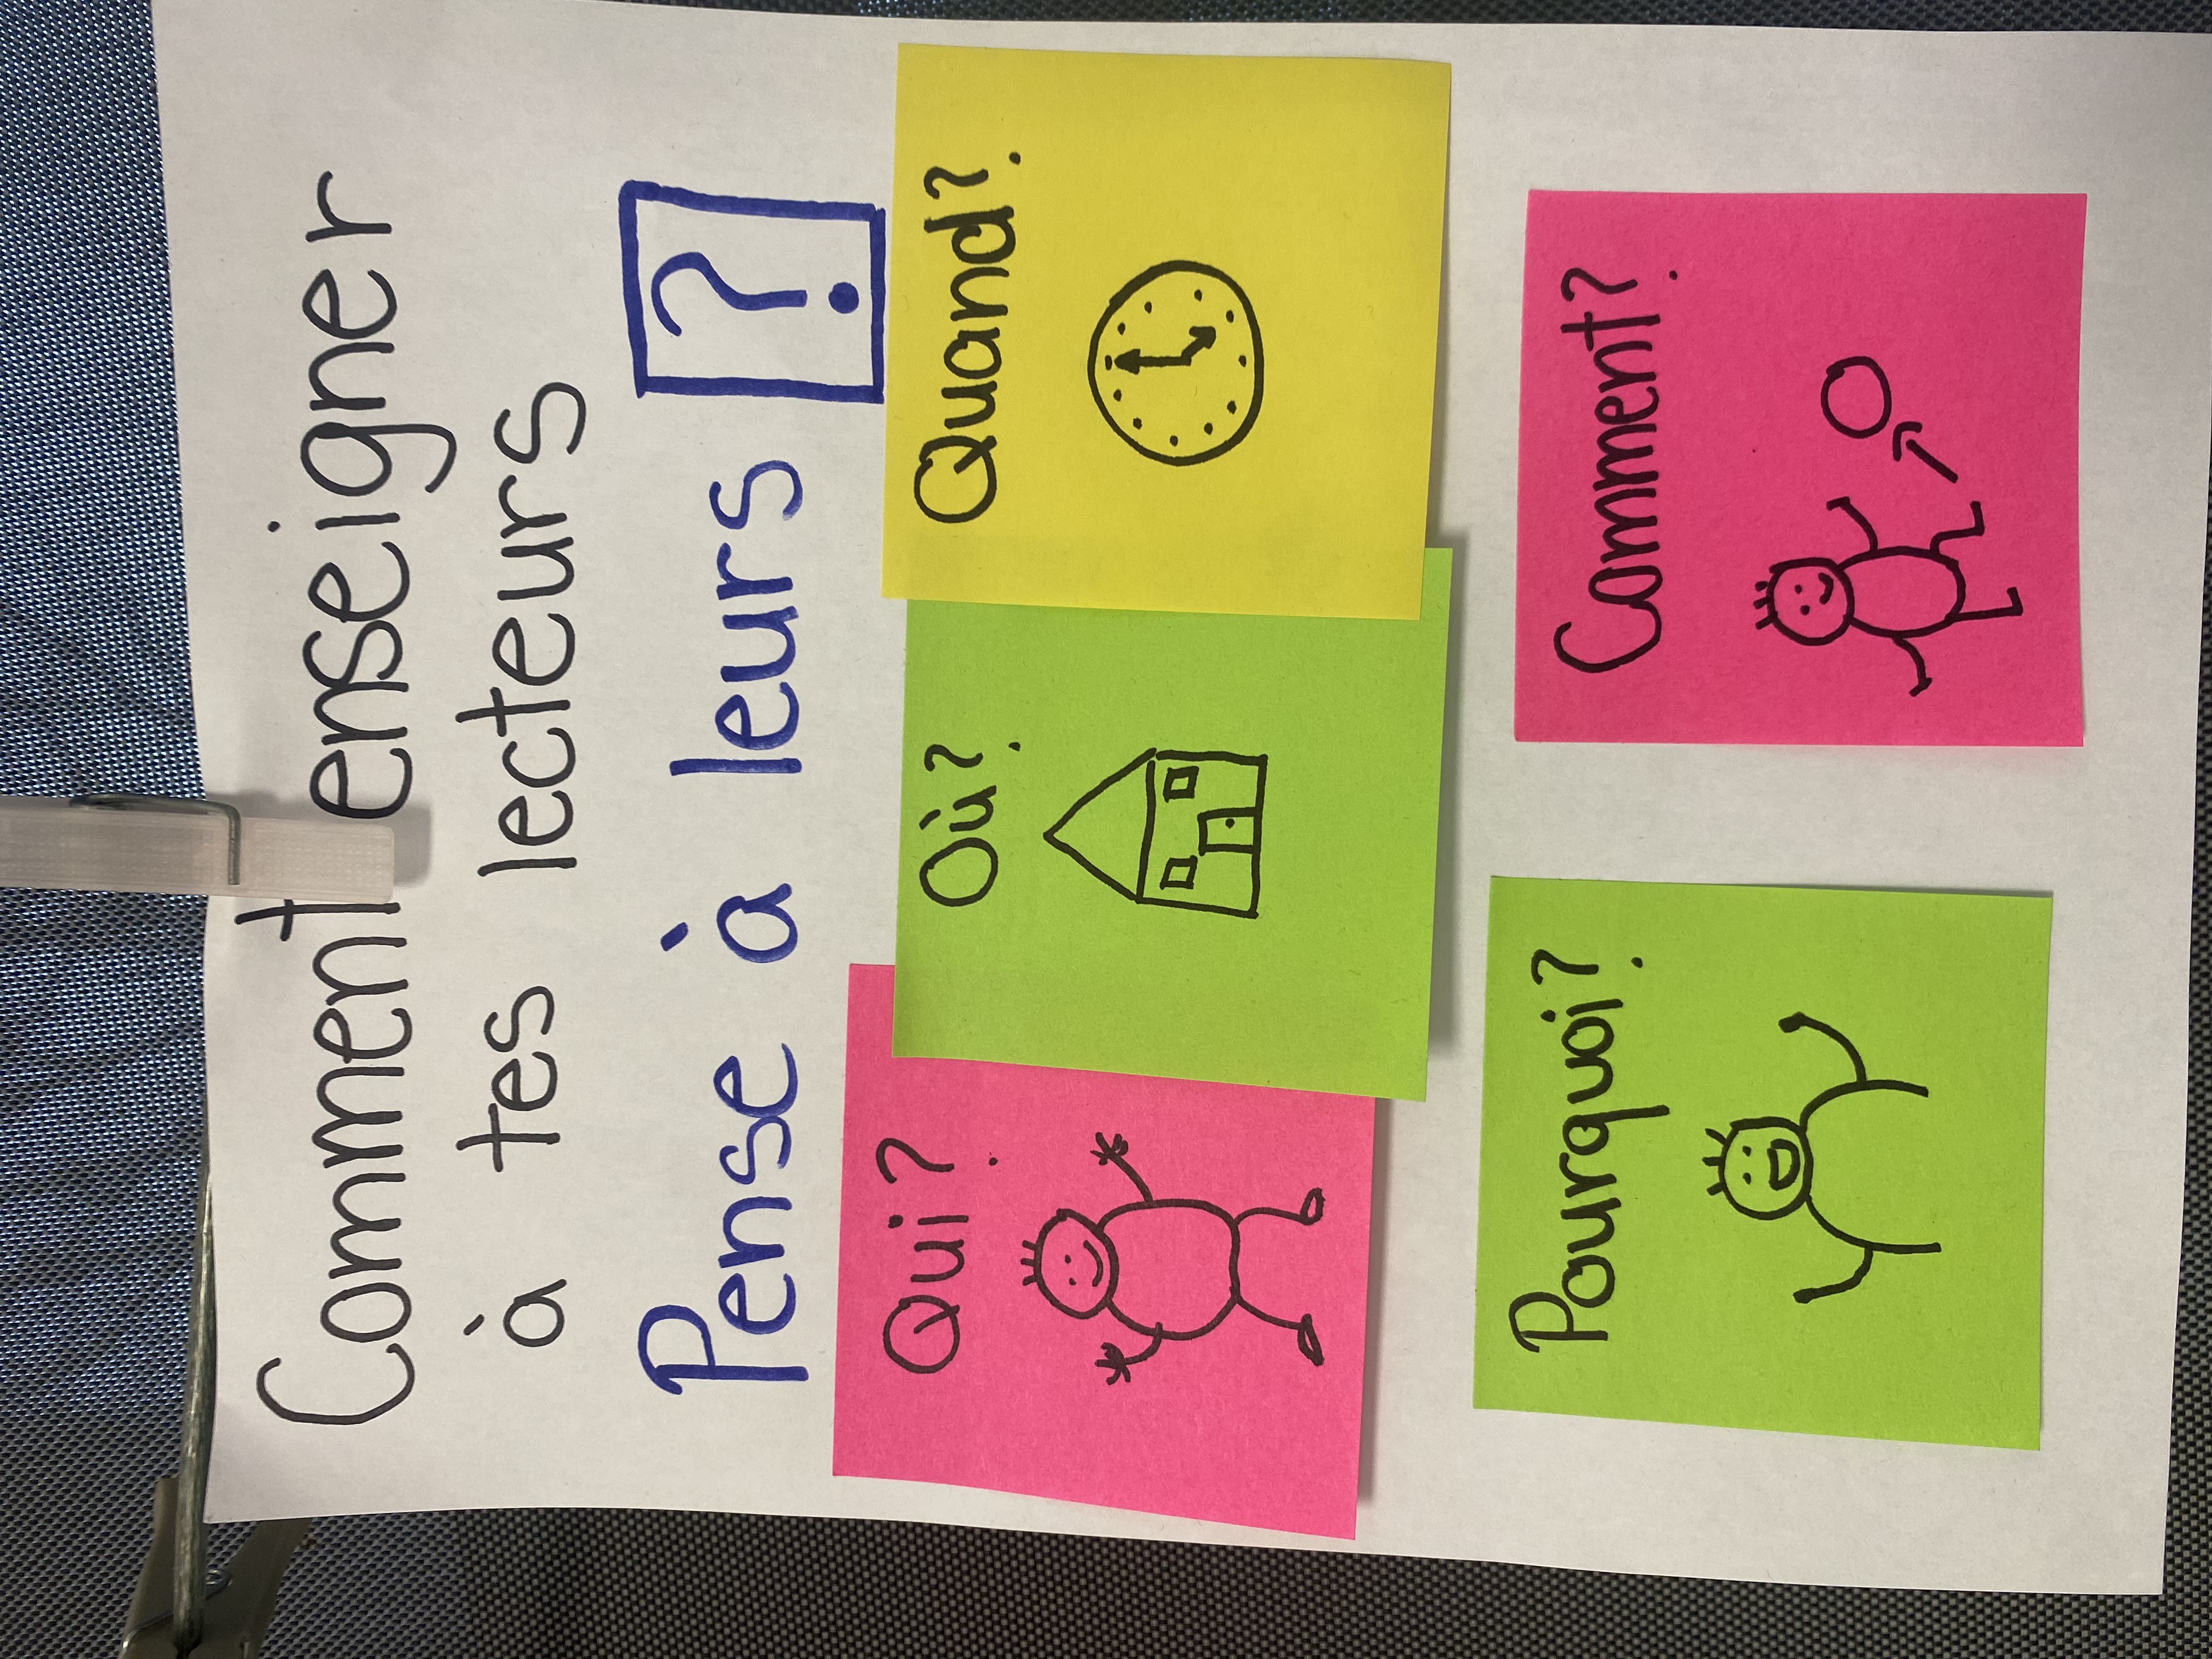 Comment enseigner
à tes lecteurs
Pense à leurs ?
Qui?
Où?
Quand?
Pourquoi?
Comment?